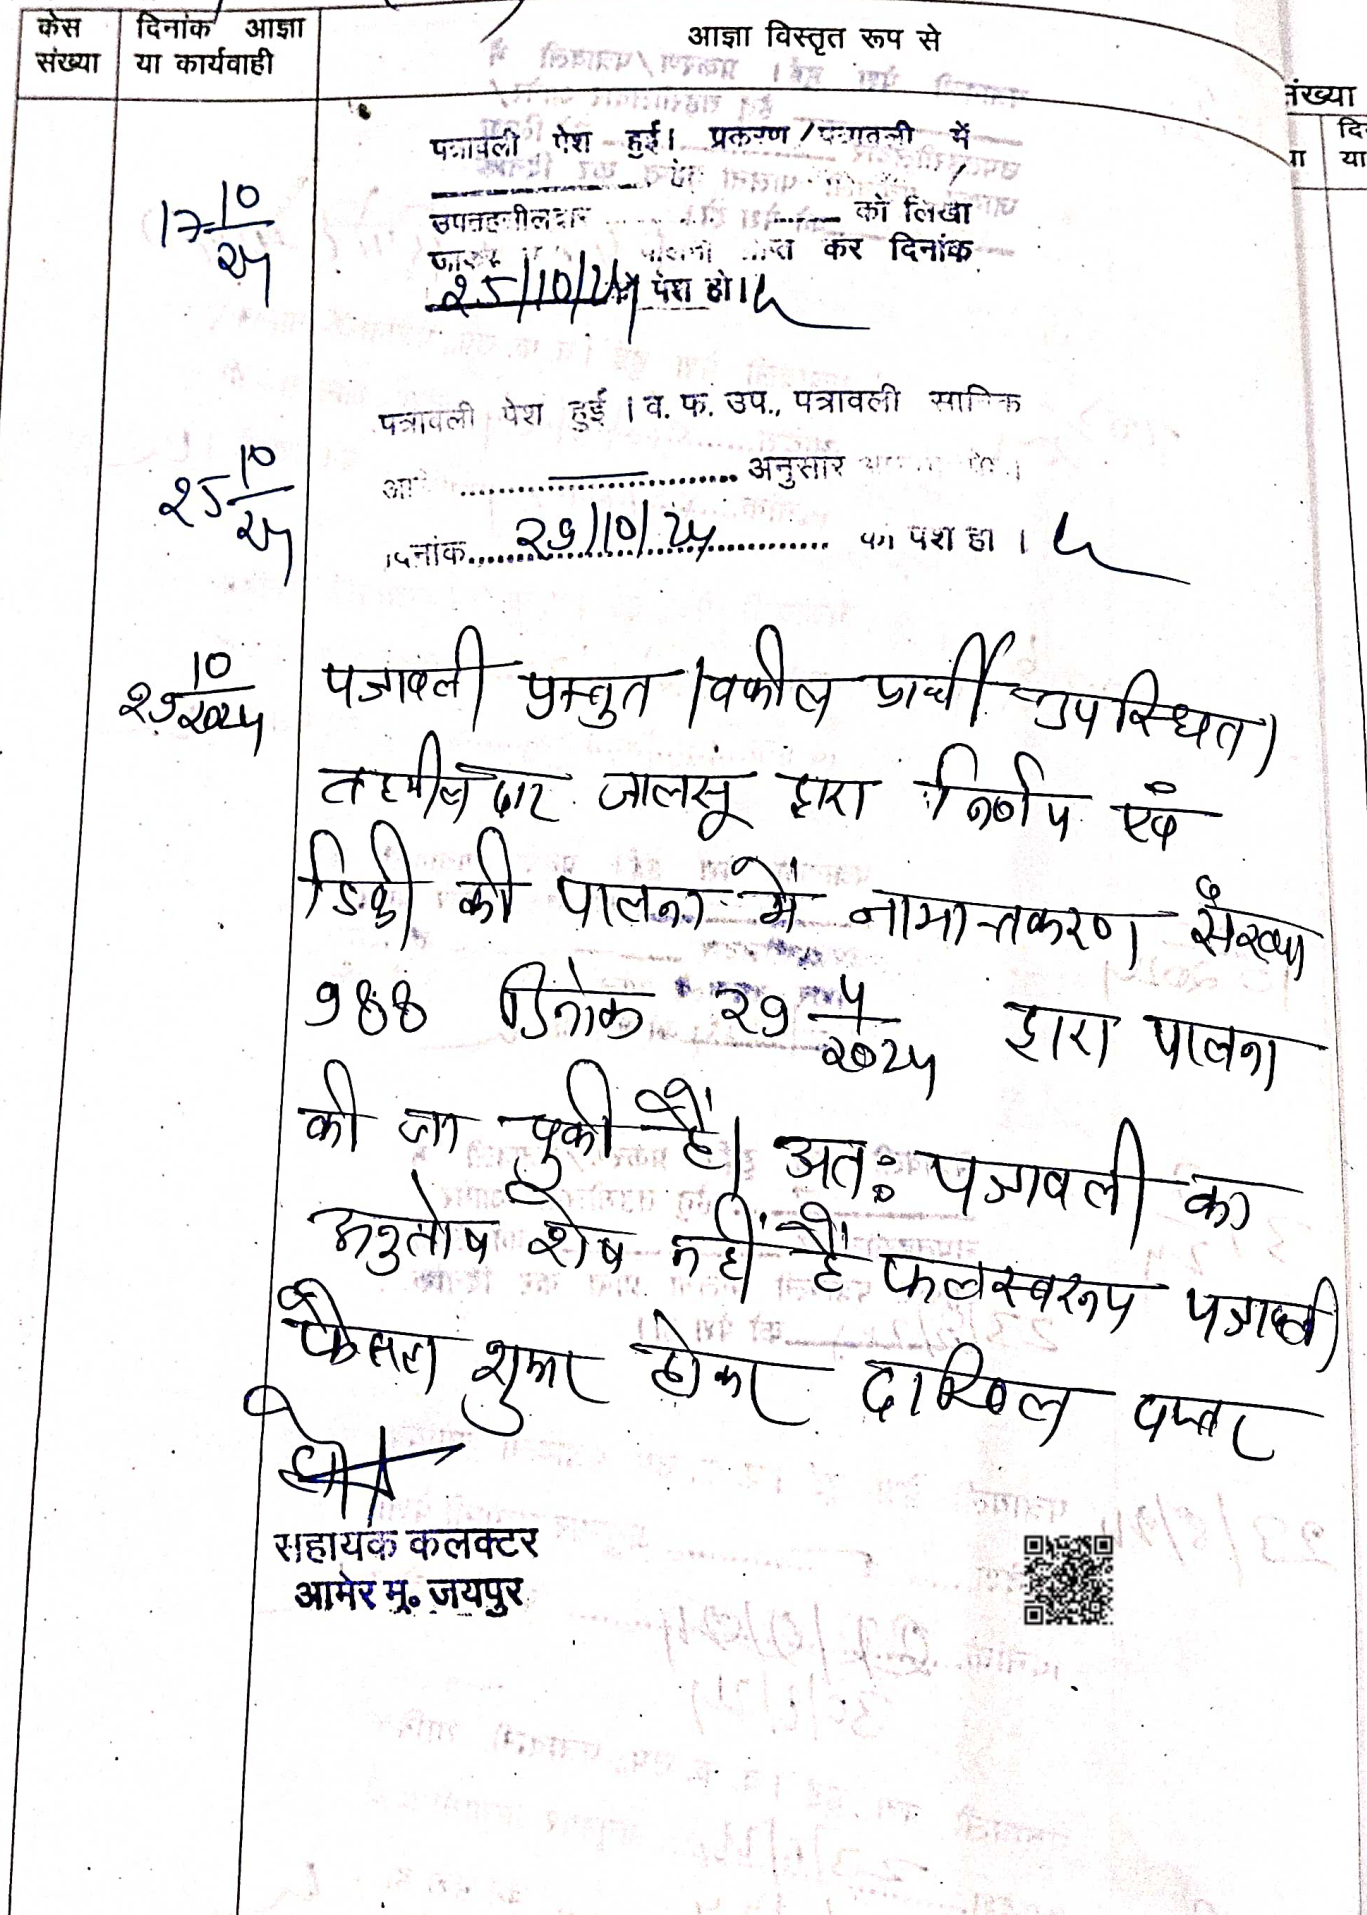 केस संख्या
दिनांक आज्ञा या कार्यवाही
आज्ञा विस्तृत रूप से
संख्या
पत्रावली पेश हुई। प्रकरण/पत्रावली में
17 10/24
उपतहसीलदार को लिखा
कर दिनांक
25/10/24 पेश हो।
पत्रावली पेश हुई । व. फ. उप., पत्रावली साबिक
25 10/24
अनुसार
दिनांक 29/10/24 को पेश हो ।
29 10/2024
पत्रावली प्रस्तुत। वकील प्रार्थी उपस्थित।
तहसीलदार जालसू द्वारा निर्णय एवं
डिक्री की पालना में नामान्तकरण संख्या
988 दिनांक 29 4/2024 द्वारा पालना
की जा चुकी है। अतः पत्रावली का
अनुतोष शेष नहीं है फलस्वरूप पत्रावली
फैसला शुमार होकर दाखिल दफ्तर
हो।
सहायक कलक्टर
आमेर मु. जयपुर